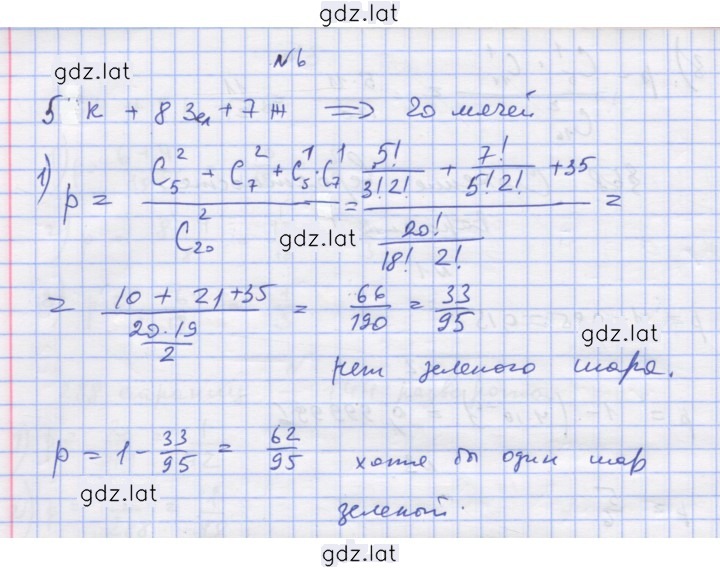 gdz.lat
N6
gdz.lat
5 к + 8 зел + 7 ж ⟹ 20 мячей
1) p = (C₅² + C₇² + C₅¹·C₇¹) / C₂₀² = (5!/(3!2!) + 7!/(5!2!) + 35) / (20!/(18! 2!)) =
gdz.lat
= (10 + 21 + 35) / (20·19/2) = 66/190 = 33/95
gdz.lat
нет зеленого шара.
p = 1 - 33/95 = 62/95 хотя бы один шар
gdz.lat
зеленый.
gdz.lat